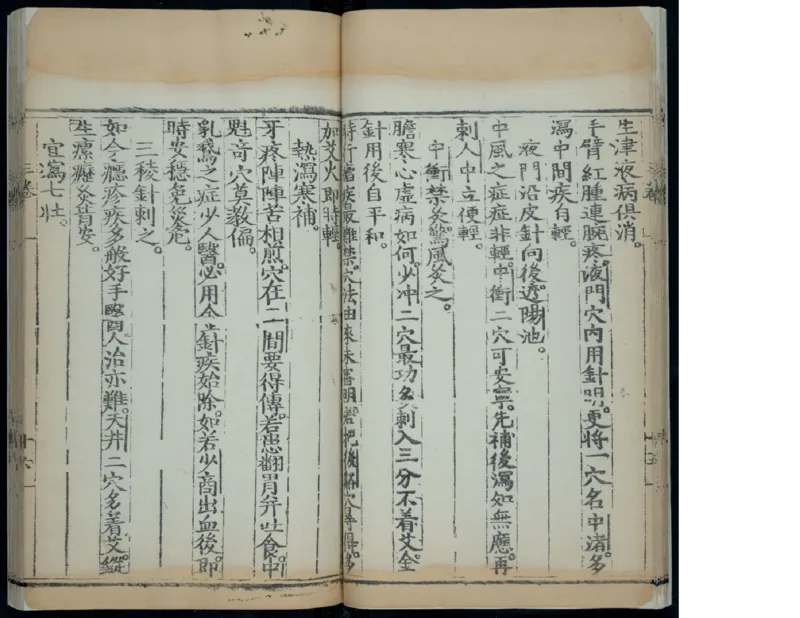 生津液病俱消。
手臂紅腫連腕疼。液門穴內用針明。更將一穴名中渚。多
瀉中間疾自輕。
液門沿皮針向後。透陽池。
中風之症症非輕。中衝二穴可安寧。先補後瀉如無應。再
刺人中立便輕。
中衝禁灸驚風灸之。
膽寒心虛病如何。少冲二穴最功多。刺入三分不着艾。金
針用後自平和。
時行瘧疾最難禁。穴法由來未審明。若把後谿穴尋得。多
加艾火即時輕。
熱瀉寒補。
牙疼陣陣苦相煎。穴在二間要得傳。若患翻胃并吐食。中
魁奇穴莫教偏。
乳鵞之症少人醫。必用金針疾始除。如若少商出血後。即
時安穩免災危。
三稜針刺之。
如今癮疹疾多般。好手醫人治亦難。天井二穴多着艾。縱
生瘰癧灸皆安。
宜瀉七壯。